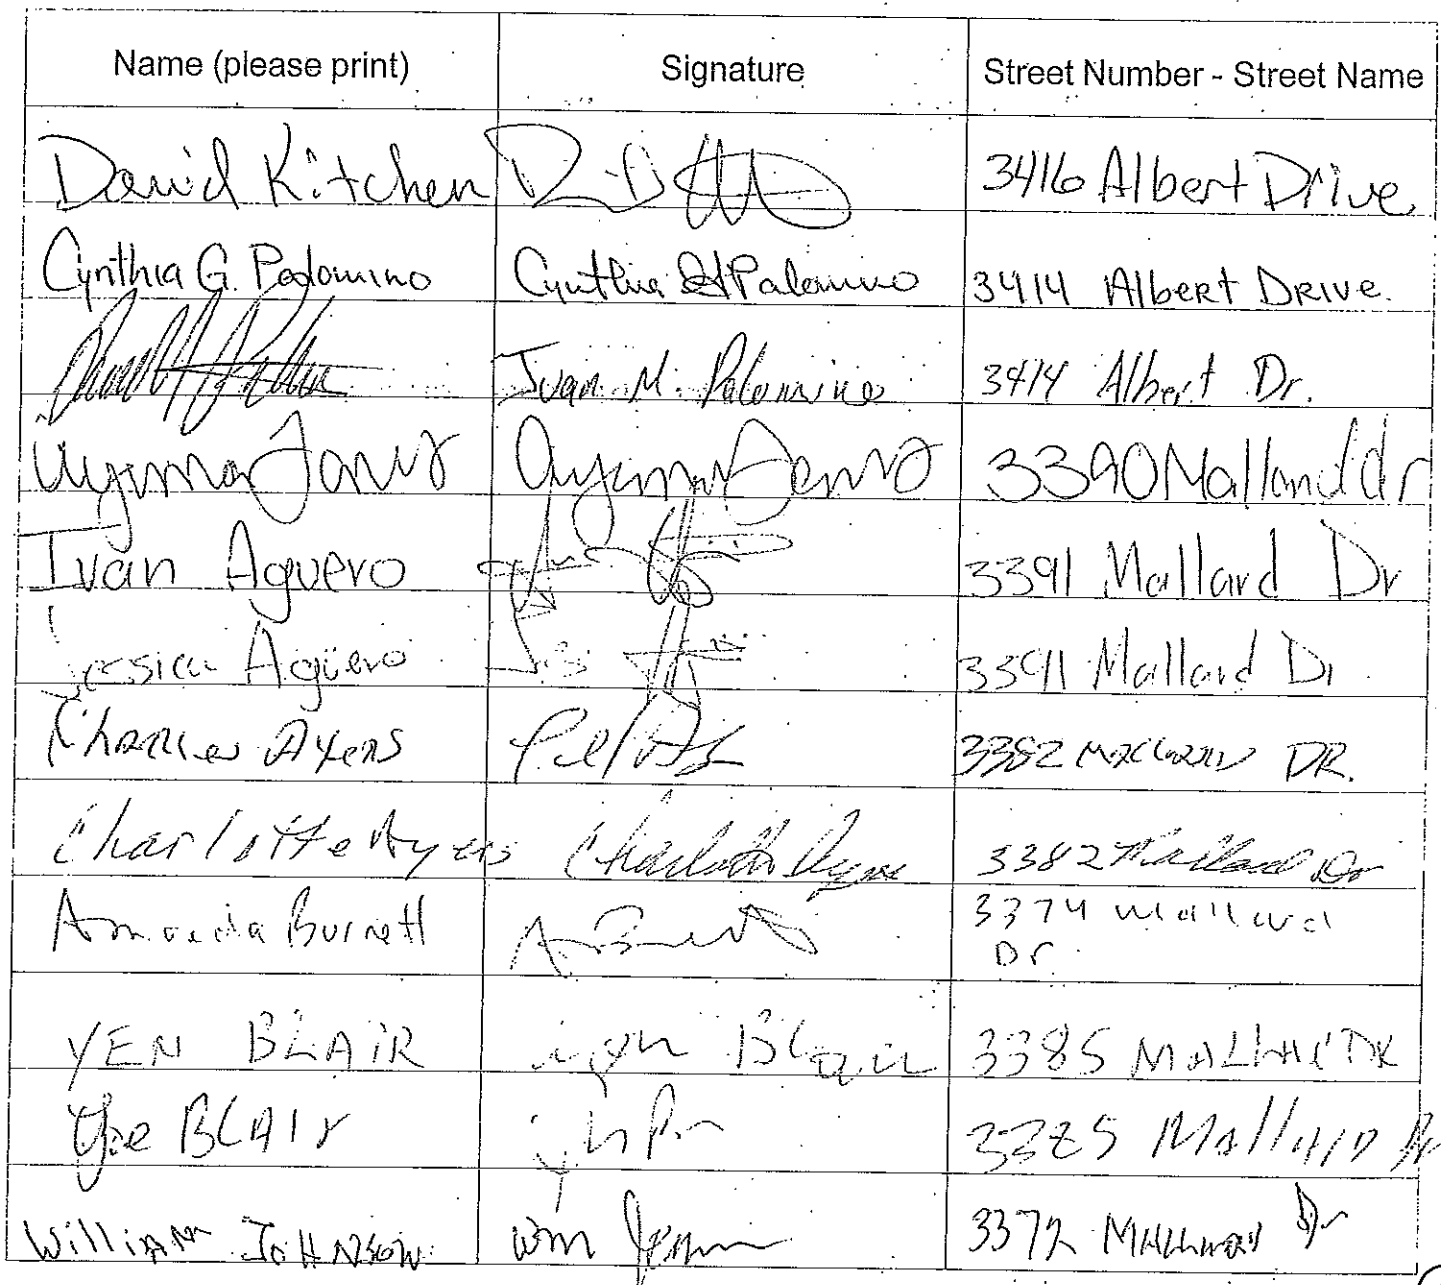 Name (please print) Signature Street Number - Street Name
David Kitchen 3416 Albert Drive
Cynthia G. Palomino Cynthia G Palomino 3414 Albert Drive.
Ivan M. Palomino 3414 Albert Dr.
Jones 3390 Mallard dr
Ivan Aguero 3391 Mallard Dr
Jessica Agüero 3391 Mallard Dr
Charles Ayers 3382 Mallard DR.
Charlotte Ayers Charlotte Ayers 3382 Mallard Dr
Amanda Burnett 3374 Mallard
Dr.
YEN BLAIR yen Blair 3385 MALLARD DR
BLAIR 3385 Mallard Dr
William Johnson Wm 3372 Mallard Dr